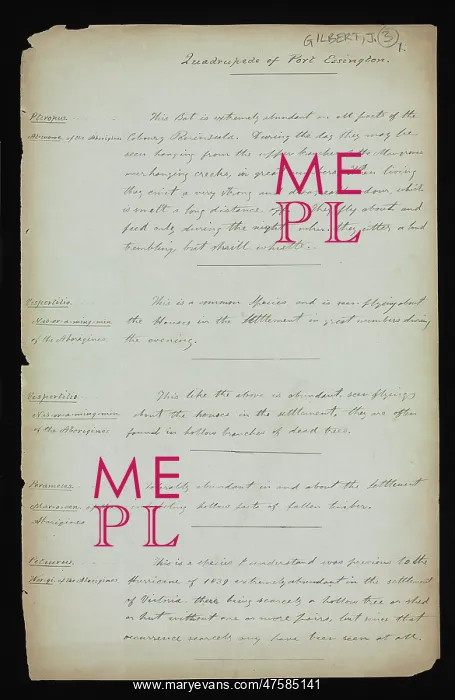 GILBERT, J. 3
1.
Quadrupeds of Port Essington.
Pteropus. This Bat is extremely abundant in all parts of the
of the Aborigines Colony Peninsula. During the day they may be
seen hanging from the upper branches of the Mangroves
over hanging creeks, in great numbers. When living
they emit a very strong and odour, which
is smelt a long distance off. They fly about and
feed only during the night when they utter a loud
trembling but shrill whistle.
Vespertilio. This is a common Species, and is seen flying about
the Houses in the Settlement in great numbers during
of the Aborigines the evening.
Vespertilio. This like the above is abundant, seen flying
about the houses in the settlement, they are often
of the Aborigines found in hollow branches of dead trees.
Perameles. Tolerably abundant in and about the Settlement
of the inhabiting hollow parts of fallen timber.
Aborigines
Petaurus. This is a species I understand was previous to the
of the Aborigines Hurricane of 1839 extremely abundant in the settlement
of Victoria. there being scarcely a hollow tree or shed
or hut without one or more pairs, but since that
occurrence scarcely any have been seen at all.
ME
PL
ME
PL
www.maryevans.com 47585141